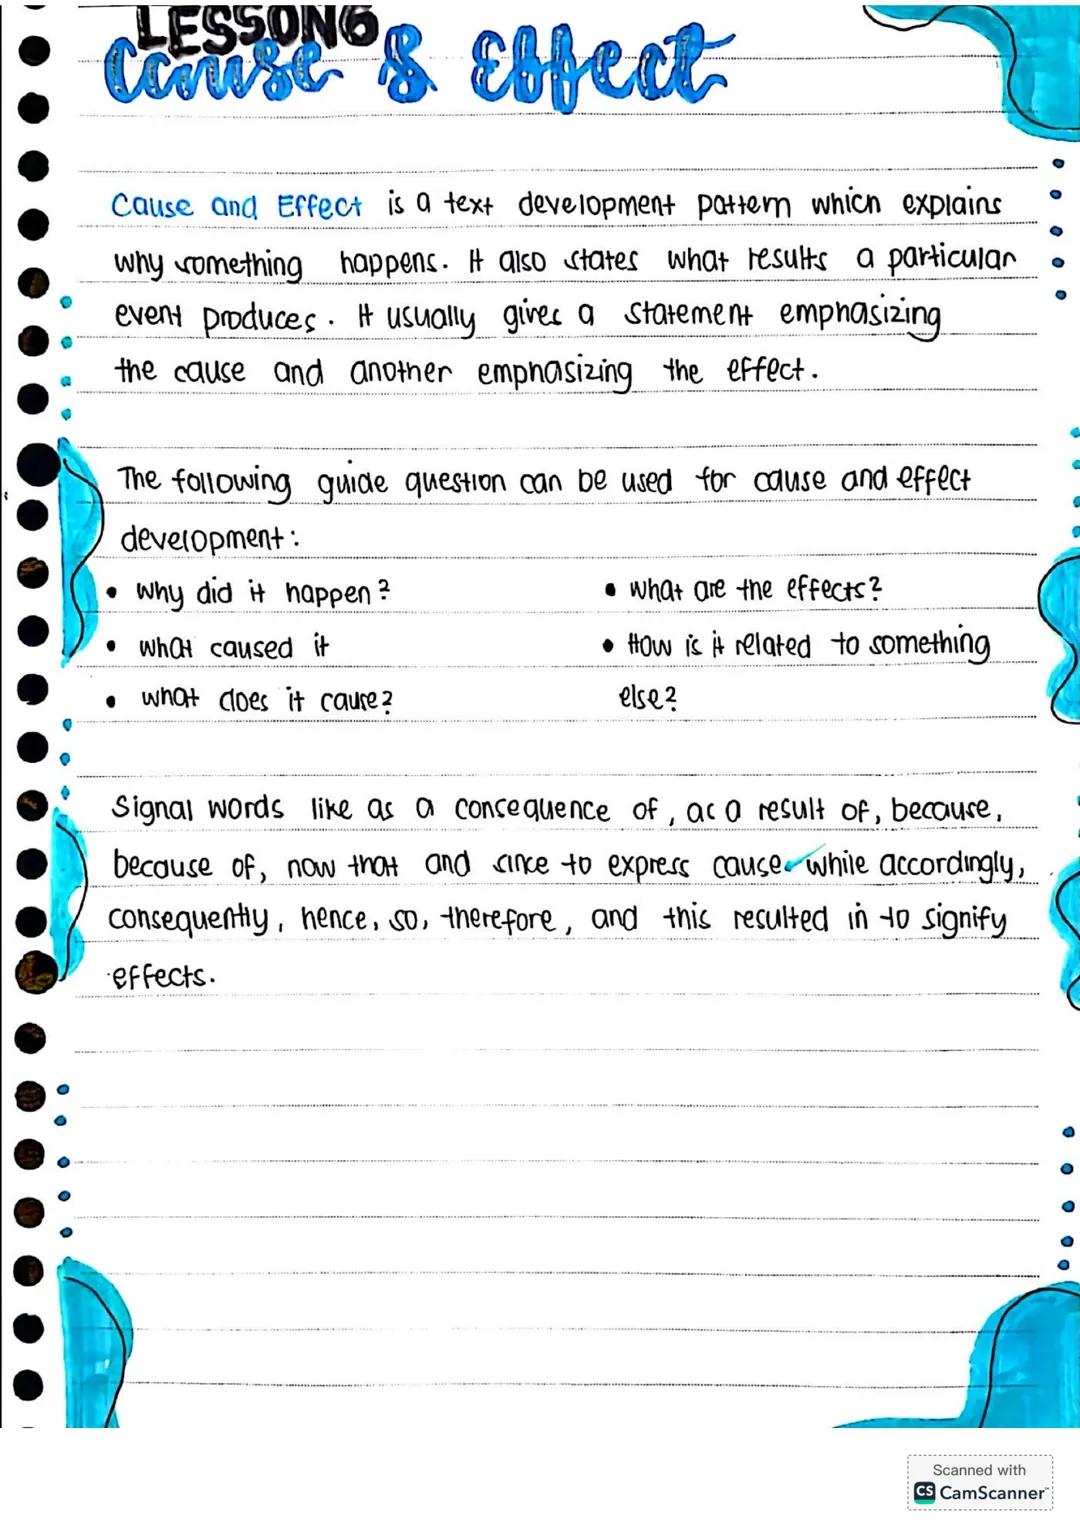 LESSON6
Cause & Effect
Cause and Effect is a text development pattern which explains
why something happens. It also states what results a particular
event produces. It usually gives a statement emphasizing
the cause and another emphasizing the effect.
The following guide question can be used for cause and effect
development:
• Why did it happen?
• what caused it
• what does it cause?
• what are the effects?
• How is it related to something
else?
Signal words like as a consequence of, as a result of, because,
because of, now that and since to express cause while accordingly,
consequently, hence, so, therefore, and this resulted in to signify
effects.
Scanned with
CS CamScanner